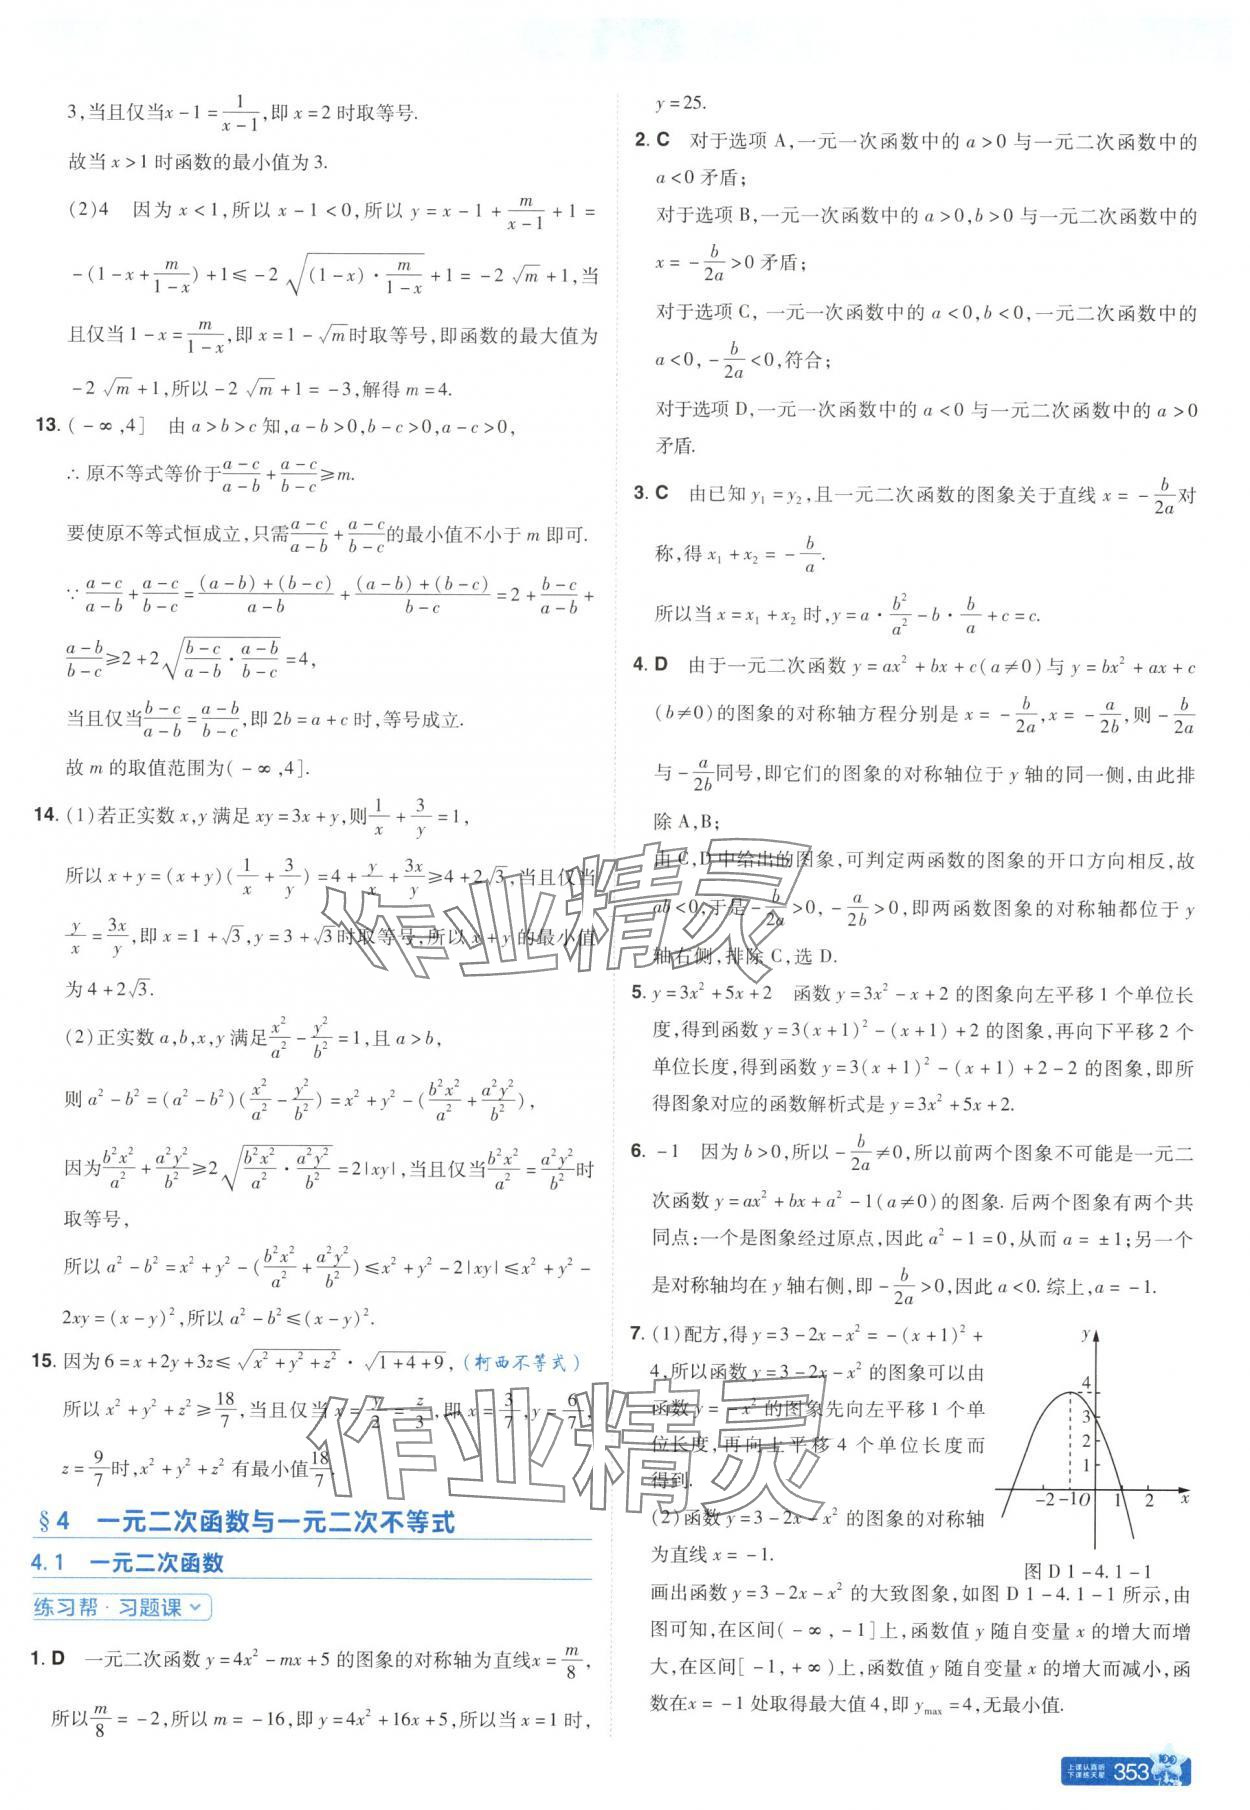 3,当且仅当x-1=\frac{1}{x-1},即x=2时取等号.
故当x>1时函数的最小值为3.
(2)4 因为x<1,所以x-1<0,所以y=x-1+\frac{m}{x-1}+1=
-(1-x+\frac{m}{1-x})+1≤-2\sqrt{(1-x)·\frac{m}{1-x}}+1=-2\sqrt{m}+1,当
且仅当1-x=\frac{m}{1-x},即x=1-\sqrt{m}时取等号,即函数的最大值为
-2\sqrt{m}+1,所以-2\sqrt{m}+1=-3,解得m=4.
13.(-∞,4] 由a>b>c知,a-b>0,b-c>0,a-c>0,
∴原不等式等价于\frac{a-c}{a-b}+\frac{a-c}{b-c}≥m.
要使原不等式恒成立,只需\frac{a-c}{a-b}+\frac{a-c}{b-c}的最小值不小于m即可.
∵\frac{a-c}{a-b}+\frac{a-c}{b-c}=\frac{(a-b)+(b-c)}{a-b}+\frac{(a-b)+(b-c)}{b-c}=2+\frac{b-c}{a-b}+
\frac{a-b}{b-c}≥2+2\sqrt{\frac{b-c}{a-b}·\frac{a-b}{b-c}}=4,
当且仅当\frac{b-c}{a-b}=\frac{a-b}{b-c},即2b=a+c时,等号成立.
故m的取值范围为(-∞,4].
14.(1)若正实数x,y满足xy=3x+y,则\frac{1}{x}+\frac{3}{y}=1,
所以x+y=(x+y)(\frac{1}{x}+\frac{3}{y})=4+\frac{y}{x}+\frac{3x}{y}≥4+2\sqrt{3},当且仅当
\frac{y}{x}=\frac{3x}{y},即x=1+\sqrt{3},y=3+\sqrt{3}时取等号,所以x+y的最小值
为4+2\sqrt{3}.
(2)正实数a,b,x,y满足\frac{x²}{a²}-\frac{y²}{b²}=1,且a>b,
则a²-b²=(a²-b²)(\frac{x²}{a²}-\frac{y²}{b²})=x²+y²-(\frac{b²x²}{a²}+\frac{a²y²}{b²}),
因为\frac{b²x²}{a²}+\frac{a²y²}{b²}≥2\sqrt{\frac{b²x²}{a²}·\frac{a²y²}{b²}}=2|xy|,当且仅当\frac{b²x²}{a²}=\frac{a²y²}{b²}时
取等号,
所以a²-b²=x²+y²-(\frac{b²x²}{a²}+\frac{a²y²}{b²})≤x²+y²-2|xy|≤x²+y²-
2xy=(x-y)²,所以a²-b²≤(x-y)².
15.因为6=x+2y+3z≤\sqrt{x²+y²+z²}·\sqrt{1+4+9},(柯西不等式)
所以x²+y²+z²≥\frac{18}{7},当且仅当x=\frac{y}{2}=\frac{z}{3},即x=\frac{3}{7},y=\frac{6}{7},
z=\frac{9}{7}时,x²+y²+z²有最小值\frac{18}{7}.
§4 一元二次函数与一元二次不等式
4.1 一元二次函数
练习帮·习题课
1.D 一元二次函数y=4x²-mx+5的图象的对称轴为直线x=\frac{m}{8},
所以\frac{m}{8}=-2,所以m=-16,即y=4x²+16x+5,所以当x=1时,
y=25.
2.C 对于选项A,一元一次函数中的a>0与一元二次函数中的
a<0矛盾;
对于选项B,一元一次函数中的a>0,b>0与一元二次函数中的
x=-\frac{b}{2a}>0矛盾;
对于选项C,一元一次函数中的a<0,b<0,一元二次函数中的
a<0,-\frac{b}{2a}<0,符合;
对于选项D,一元一次函数中的a<0与一元二次函数中的a>0
矛盾.
3.C 由已知y₁=y₂,且一元二次函数的图象关于直线x=-\frac{b}{2a}对
称,得x₁+x₂=-\frac{b}{a}.
所以当x=x₁+x₂时,y=a·\frac{b²}{a²}-b·\frac{b}{a}+c=c.
4.D 由于一元二次函数y=ax²+bx+c(a≠0)与y=bx²+ax+c
(b≠0)的图象的对称轴方程分别是x=-\frac{b}{2a},x=-\frac{a}{2b},则-\frac{b}{2a}
与-\frac{a}{2b}同号,即它们的图象的对称轴位于y轴的同一侧,由此排
除A,B;
由C,D中给出的图象,可判定两函数的图象的开口方向相反,故
ab<0,于是-\frac{b}{2a}>0,-\frac{a}{2b}>0,即两函数图象的对称轴都位于y
轴右侧,排除C,选D.
5.y=3x²+5x+2 函数y=3x²-x+2的图象向左平移1个单位长
度,得到函数y=3(x+1)²-(x+1)+2的图象,再向下平移2个
单位长度,得到函数y=3(x+1)²-(x+1)+2-2的图象,即所
得图象对应的函数解析式是y=3x²+5x+2.
6.-1 因为b>0,所以-\frac{b}{2a}≠0,所以前两个图象不可能是一元二
次函数y=ax²+bx+a²-1(a≠0)的图象.后两个图象有两个共
同点:一个是图象经过原点,因此a²-1=0,从而a=±1;另一个
是对称轴均在y轴右侧,即-\frac{b}{2a}>0,因此a<0.综上,a=-1.
7.(1)配方,得y=3-2x-x²=-(x+1)²+
4,所以函数y=3-2x-x²的图象可以由
函数y=-x²的图象先向左平移1个单
位长度,再向上平移4个单位长度而
得到.
(2)函数y=3-2x-x²的图象的对称轴
为直线x=-1.
y
4
3
2
1
-2 -1 O 1 2 x
图D 1-4.1-1
画出函数y=3-2x-x²的大致图象,如图D 1-4.1-1所示,由
图可知,在区间(-∞,-1]上,函数值y随自变量x的增大而增
大,在区间[-1,+∞)上,函数值y随自变量x的增大而减小,函
数在x=-1处取得最大值4,即y_{max}=4,无最小值.
作业精灵
作业精灵
上课认真听
下课练天星
353